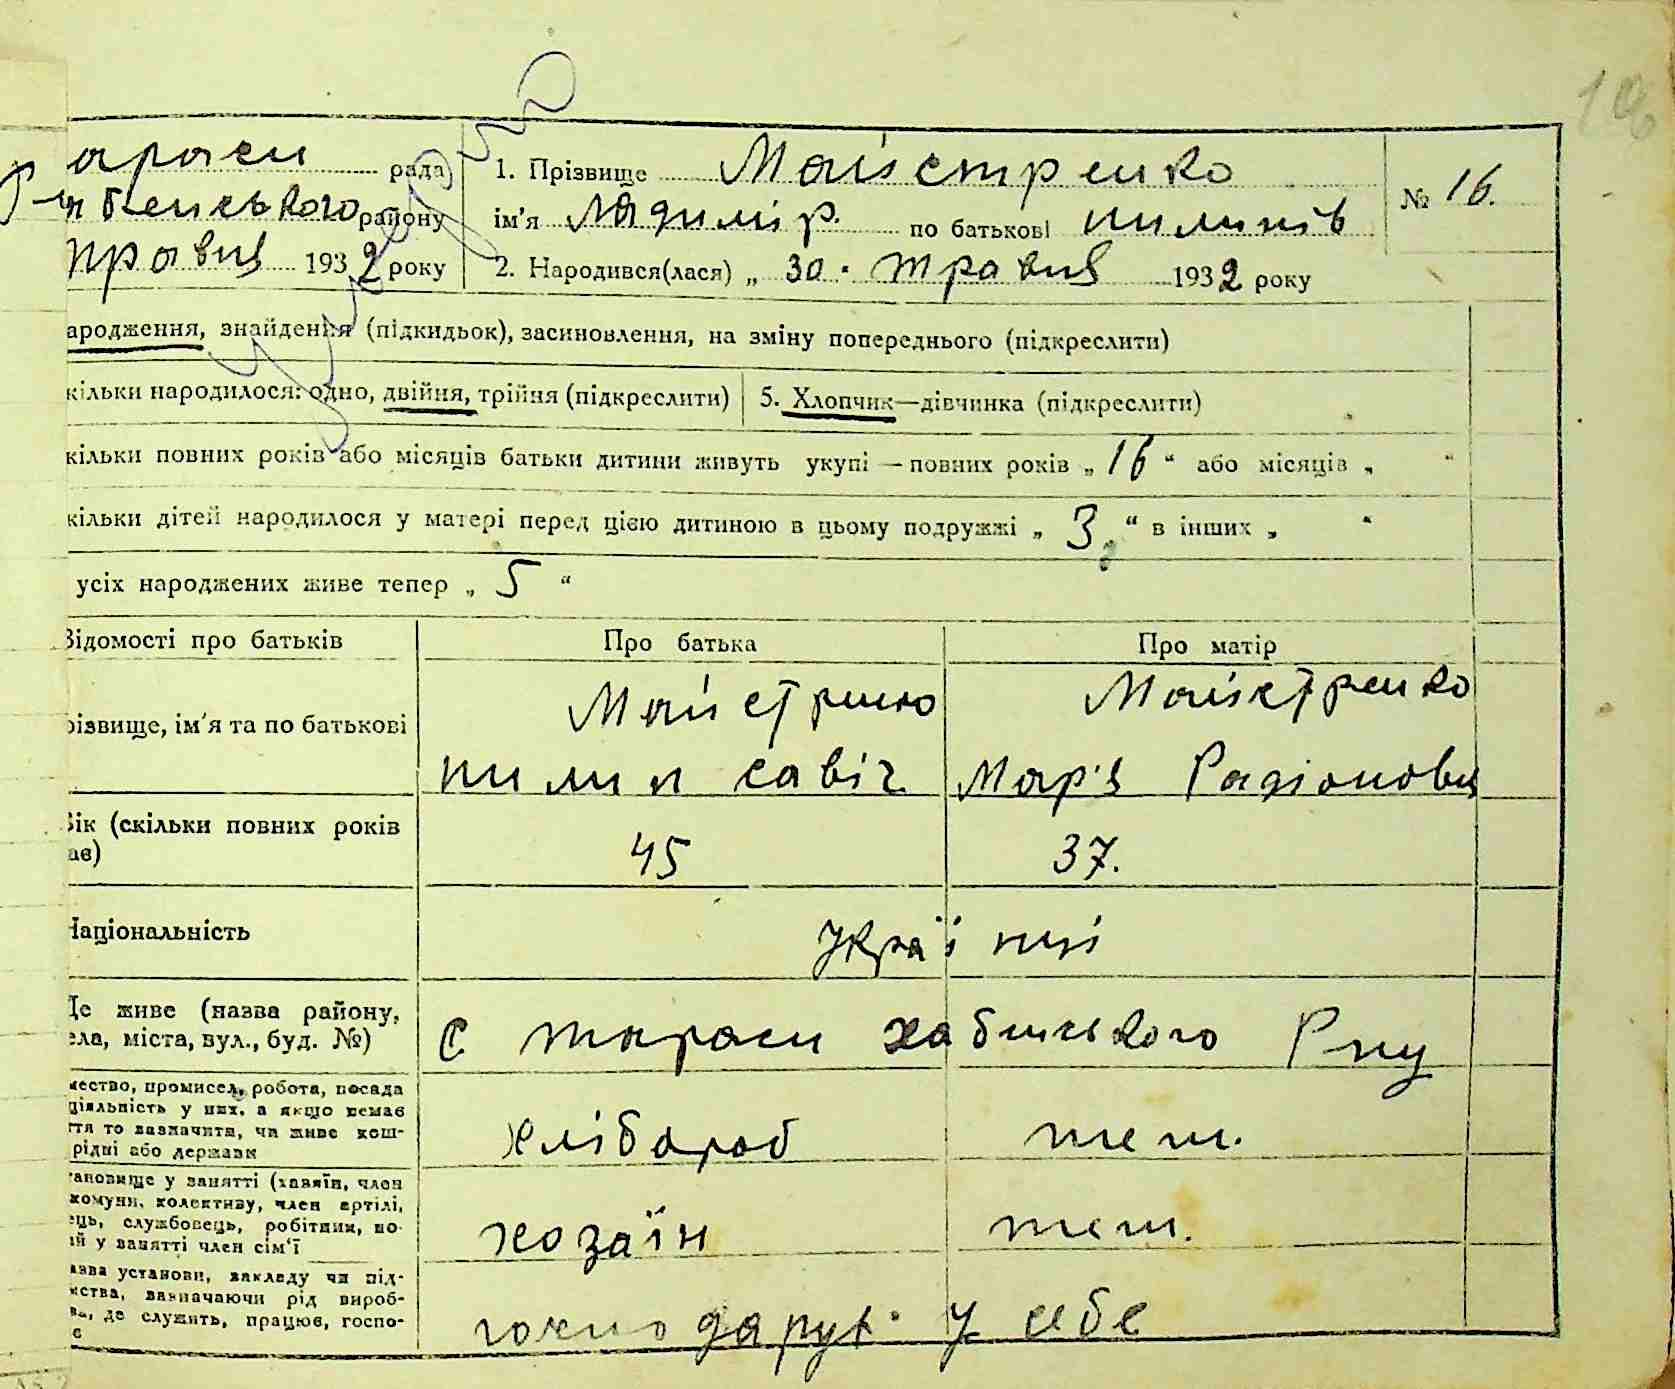 араси рада
бенського району
травня 1932 року
1. Прізвище Майстренко
ім'я Ладимір. по батькові пилипів
№ 16.
2. Народився(лася) „ 30 · травня 1932 року
ародження, знайдення (підкидьок), засиновлення, на зміну попереднього (підкреслити)
кільки народилося: одно, двійня, трійня (підкреслити)
5. Хлопчик—дівчинка (підкреслити)
кільки повних років або місяців батьки дитини живуть укупі — повних років „ 16 “ або місяців „ “
кільки дітей народилося у матері перед цією дитиною в цьому подружжі „ 3 “ в інших „ “
усіх народжених живе тепер „ 5 “
Відомості про батьків
Про батька
Про матір
різвище, ім'я та по батькові
Майстренко
пилип савіч
Майстренко
Мар'я Радіоновна
Вік (скільки повних років
ає)
45
37.
Національність
Україінці
Де живе (назва району,
ела, міста, вул., буд. №)
С тараси хабенського Рну
мество, промисел, робота, посада
ціяльність у них, а якщо немає
ття то зазначити, чи живе кош-
рідні або держави
хлібароб
теш.
тановище у занятті (хазяїн, член
комуни, колективу, член артілі,
ець, службовець, робітник, по-
ий у занятті член сім'ї
хозаїн
теш.
азва установи, закладу чи під-
мства, зазначаючи рід вироб-
ва, де служить, працює, госпо-
є
госпо дарує у себе